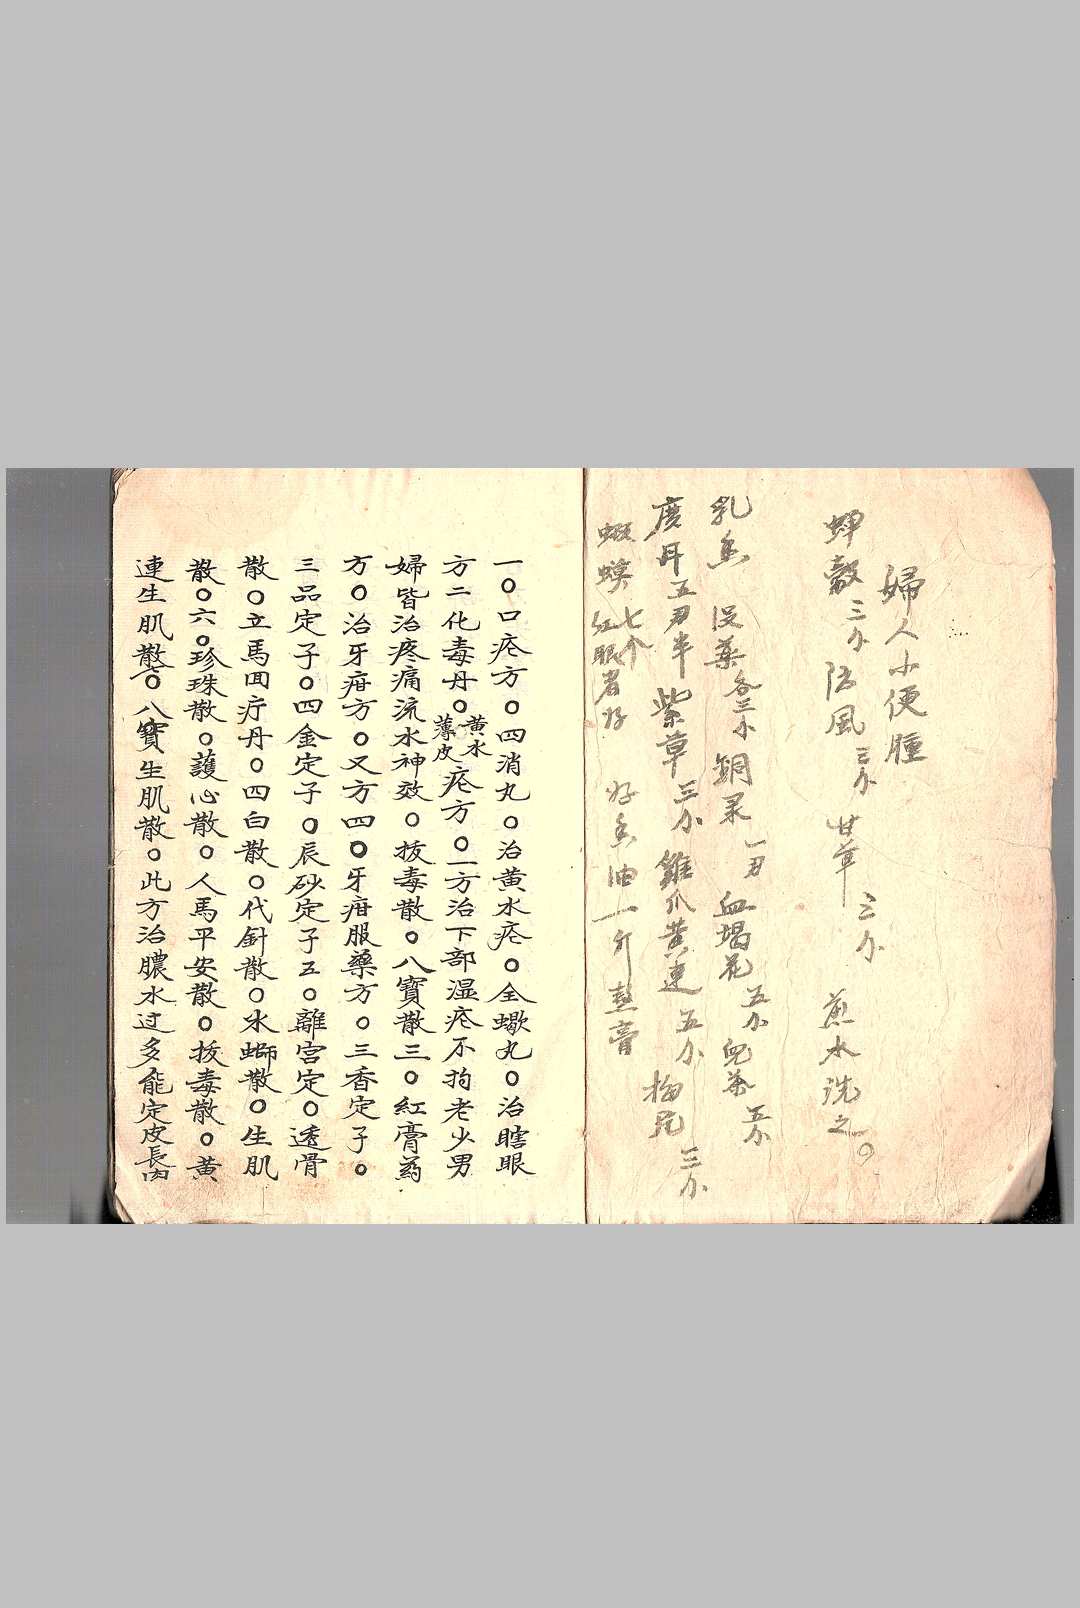 婦人小便腫
蟬殼三分防風三分甘草三分煎水洗之○
乳香 没藥各三分銅录一刃血竭花五分兒茶五分
廣丹五刃半紫草三分雞爪黃連五分梅片三分
蝦蟆七个
紅眼者好
好香油一斤熬膏
一○口疮方○四消丸○治黄水疮○全蠍丸○治瞎眼
方二化毒丹○黄水薄皮疮方○一方治下部湿疮不拘老少男
婦皆治疼痛流水神效○拔毒散○八寳散三○紅膏药
方○治牙疳方○又方四○牙疳服藥方○三香定子○
三品定子○四金定子○辰砂定子五○離宫定○透骨
散○立馬回疔丹○四白散○代針散○水螄散○生肌
散○六○珍珠散○護心散○人馬平安散○拔毒散○黄
連生肌散七○八寳生肌散○此方治膿水过多能定皮長肉